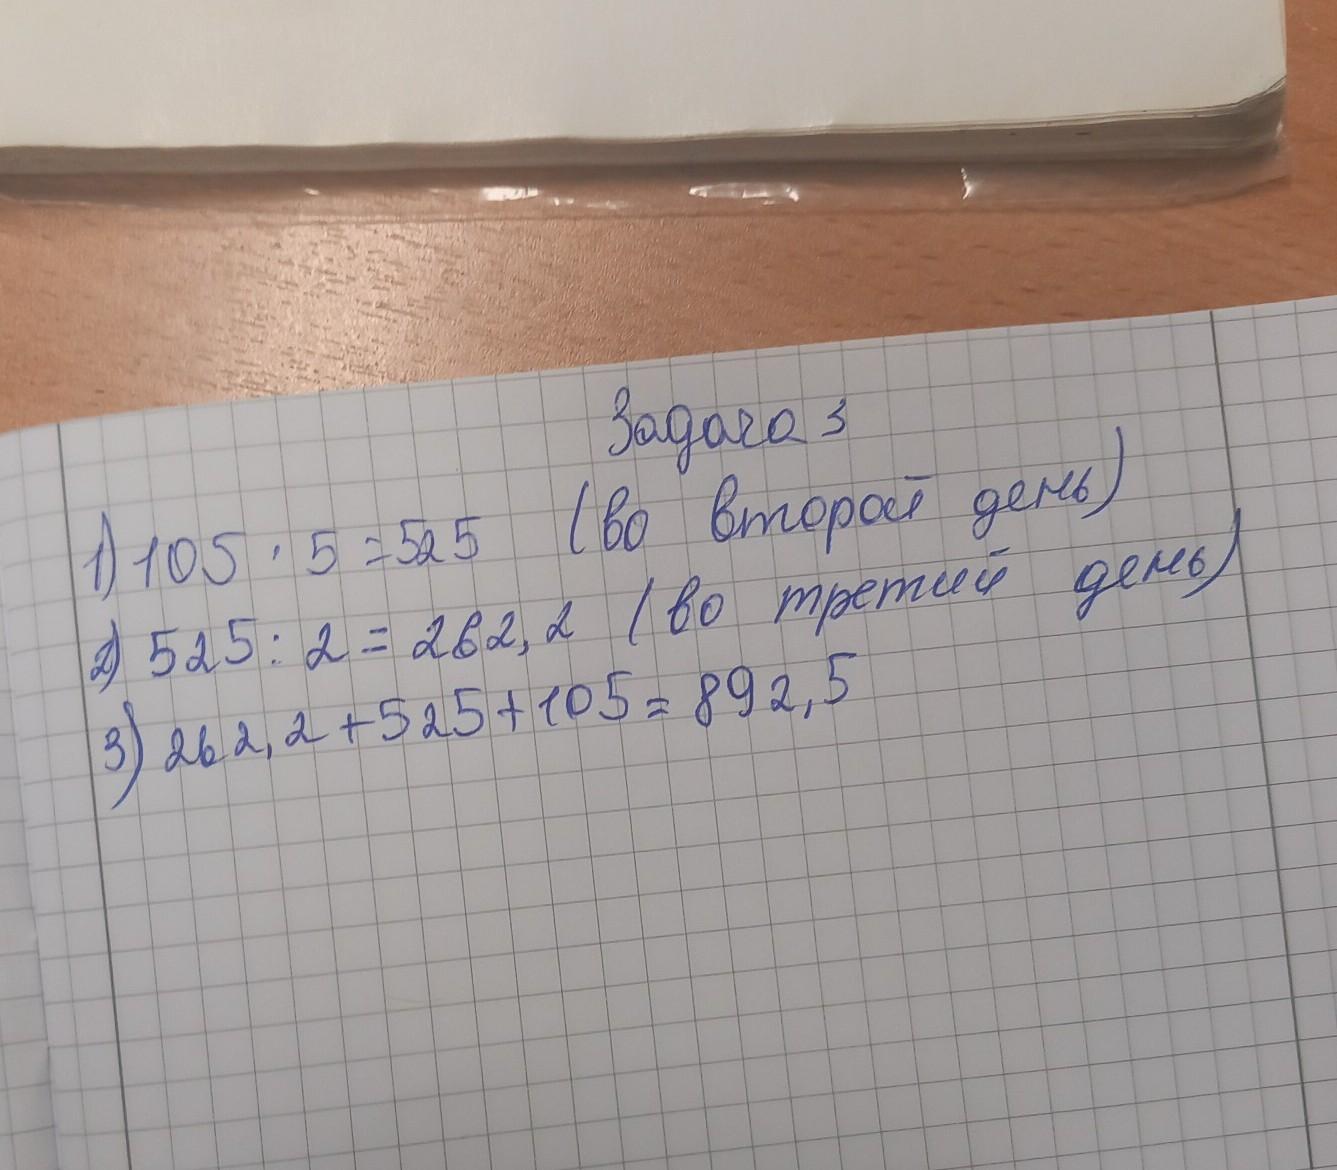 Задача 3
1) 105 · 5 = 525 (во второй день)
2) 525 : 2 = 262,2 (во третий день)
3) 262,2 + 525 + 105 = 892,5